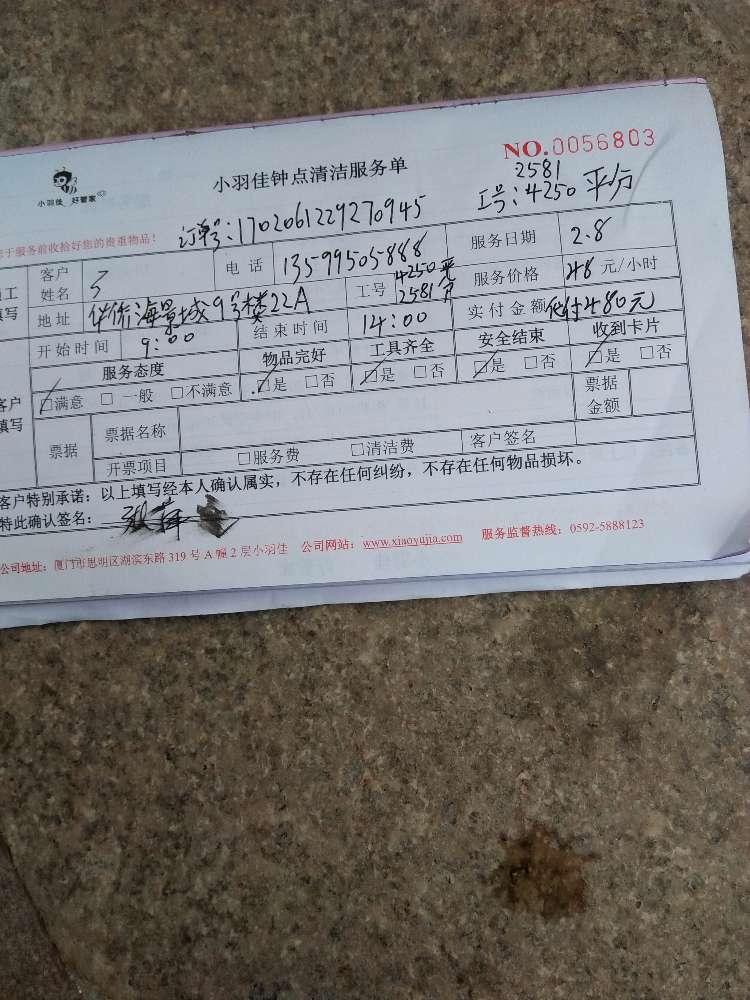 NO.0056803
小羽佳 好管家
小羽佳钟点清洁服务单
2581
工号:4250 平分
订单号:1702061229270945
于服务前收拾好您的贵重物品!
客户姓名 电话 13599505888 服务日期 2.8
地址 华侨海景城9号楼22A 工号 4250 2581 服务价格 48 元/小时
开始时间 9:00 结束时间 14:00 实付金额 480元
服务态度 物品完好 工具齐全 安全结束 收到卡片
客户填写 □满意 □一般 □不满意 □是 □否 □是 □否 □是 □否 □是 □否
票据 票据名称 票据金额
开票项目 □服务费 □清洁费 客户签名
客户特别承诺:以上填写经本人确认属实,不存在任何纠纷,不存在任何物品损坏。
特此确认签名:
公司地址:厦门市思明区湖滨东路319号A幢2层小羽佳 公司网站:www.xiaoyujia.com 服务监督热线:0592-5888123